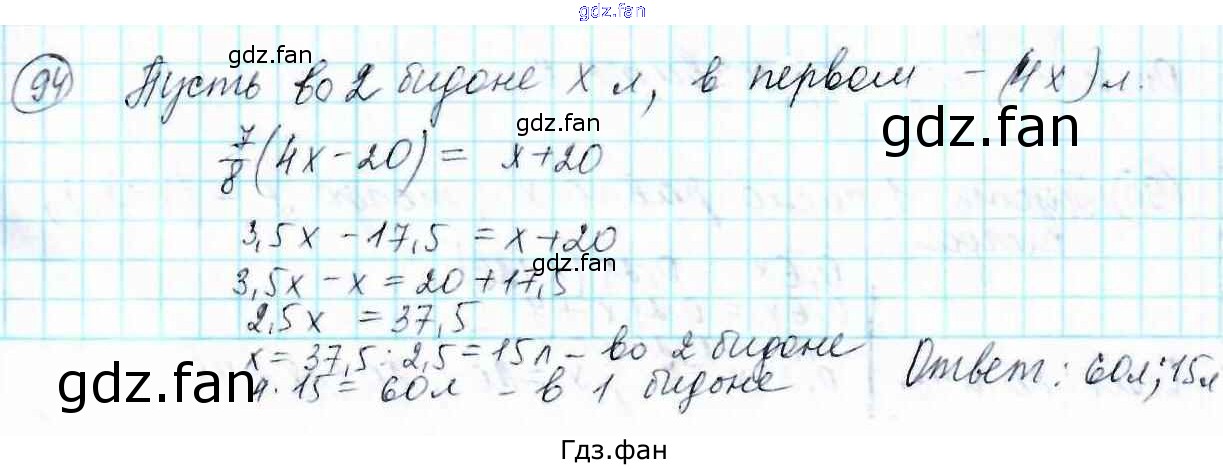 gdz.fan
gdz.fan
94 Пусть во 2 бидоне x л, в первом – (4x) л.
gdz.fan
gdz.fan
7/8 (4x – 20) = x + 20
3,5x – 17,5 = x + 20
gdz.fan
3,5x – x = 20 + 17,5
2,5x = 37,5
x = 37,5 : 2,5 = 15л – во 2 бидоне
Ответ: 60л; 15л
gdz.fan
4 · 15 = 60л – в 1 бидоне
Гдз.фан